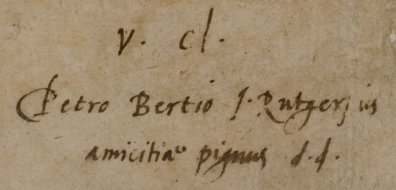 V. Cl.
Petro Bertio J. Rutgersius
amicitiae pignus d.d.